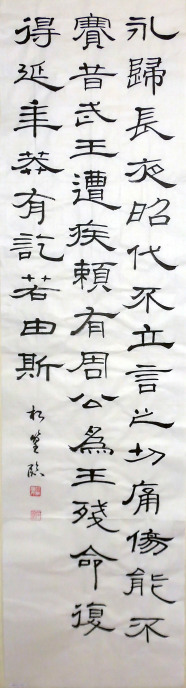 永歸長夜昭代不立言之切痛傷能不
賽昔武王遭疾賴有周公爲王殘命復
得延年莽有訖若由斯
臨